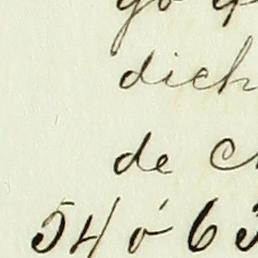 dich
de C
54 ó 63